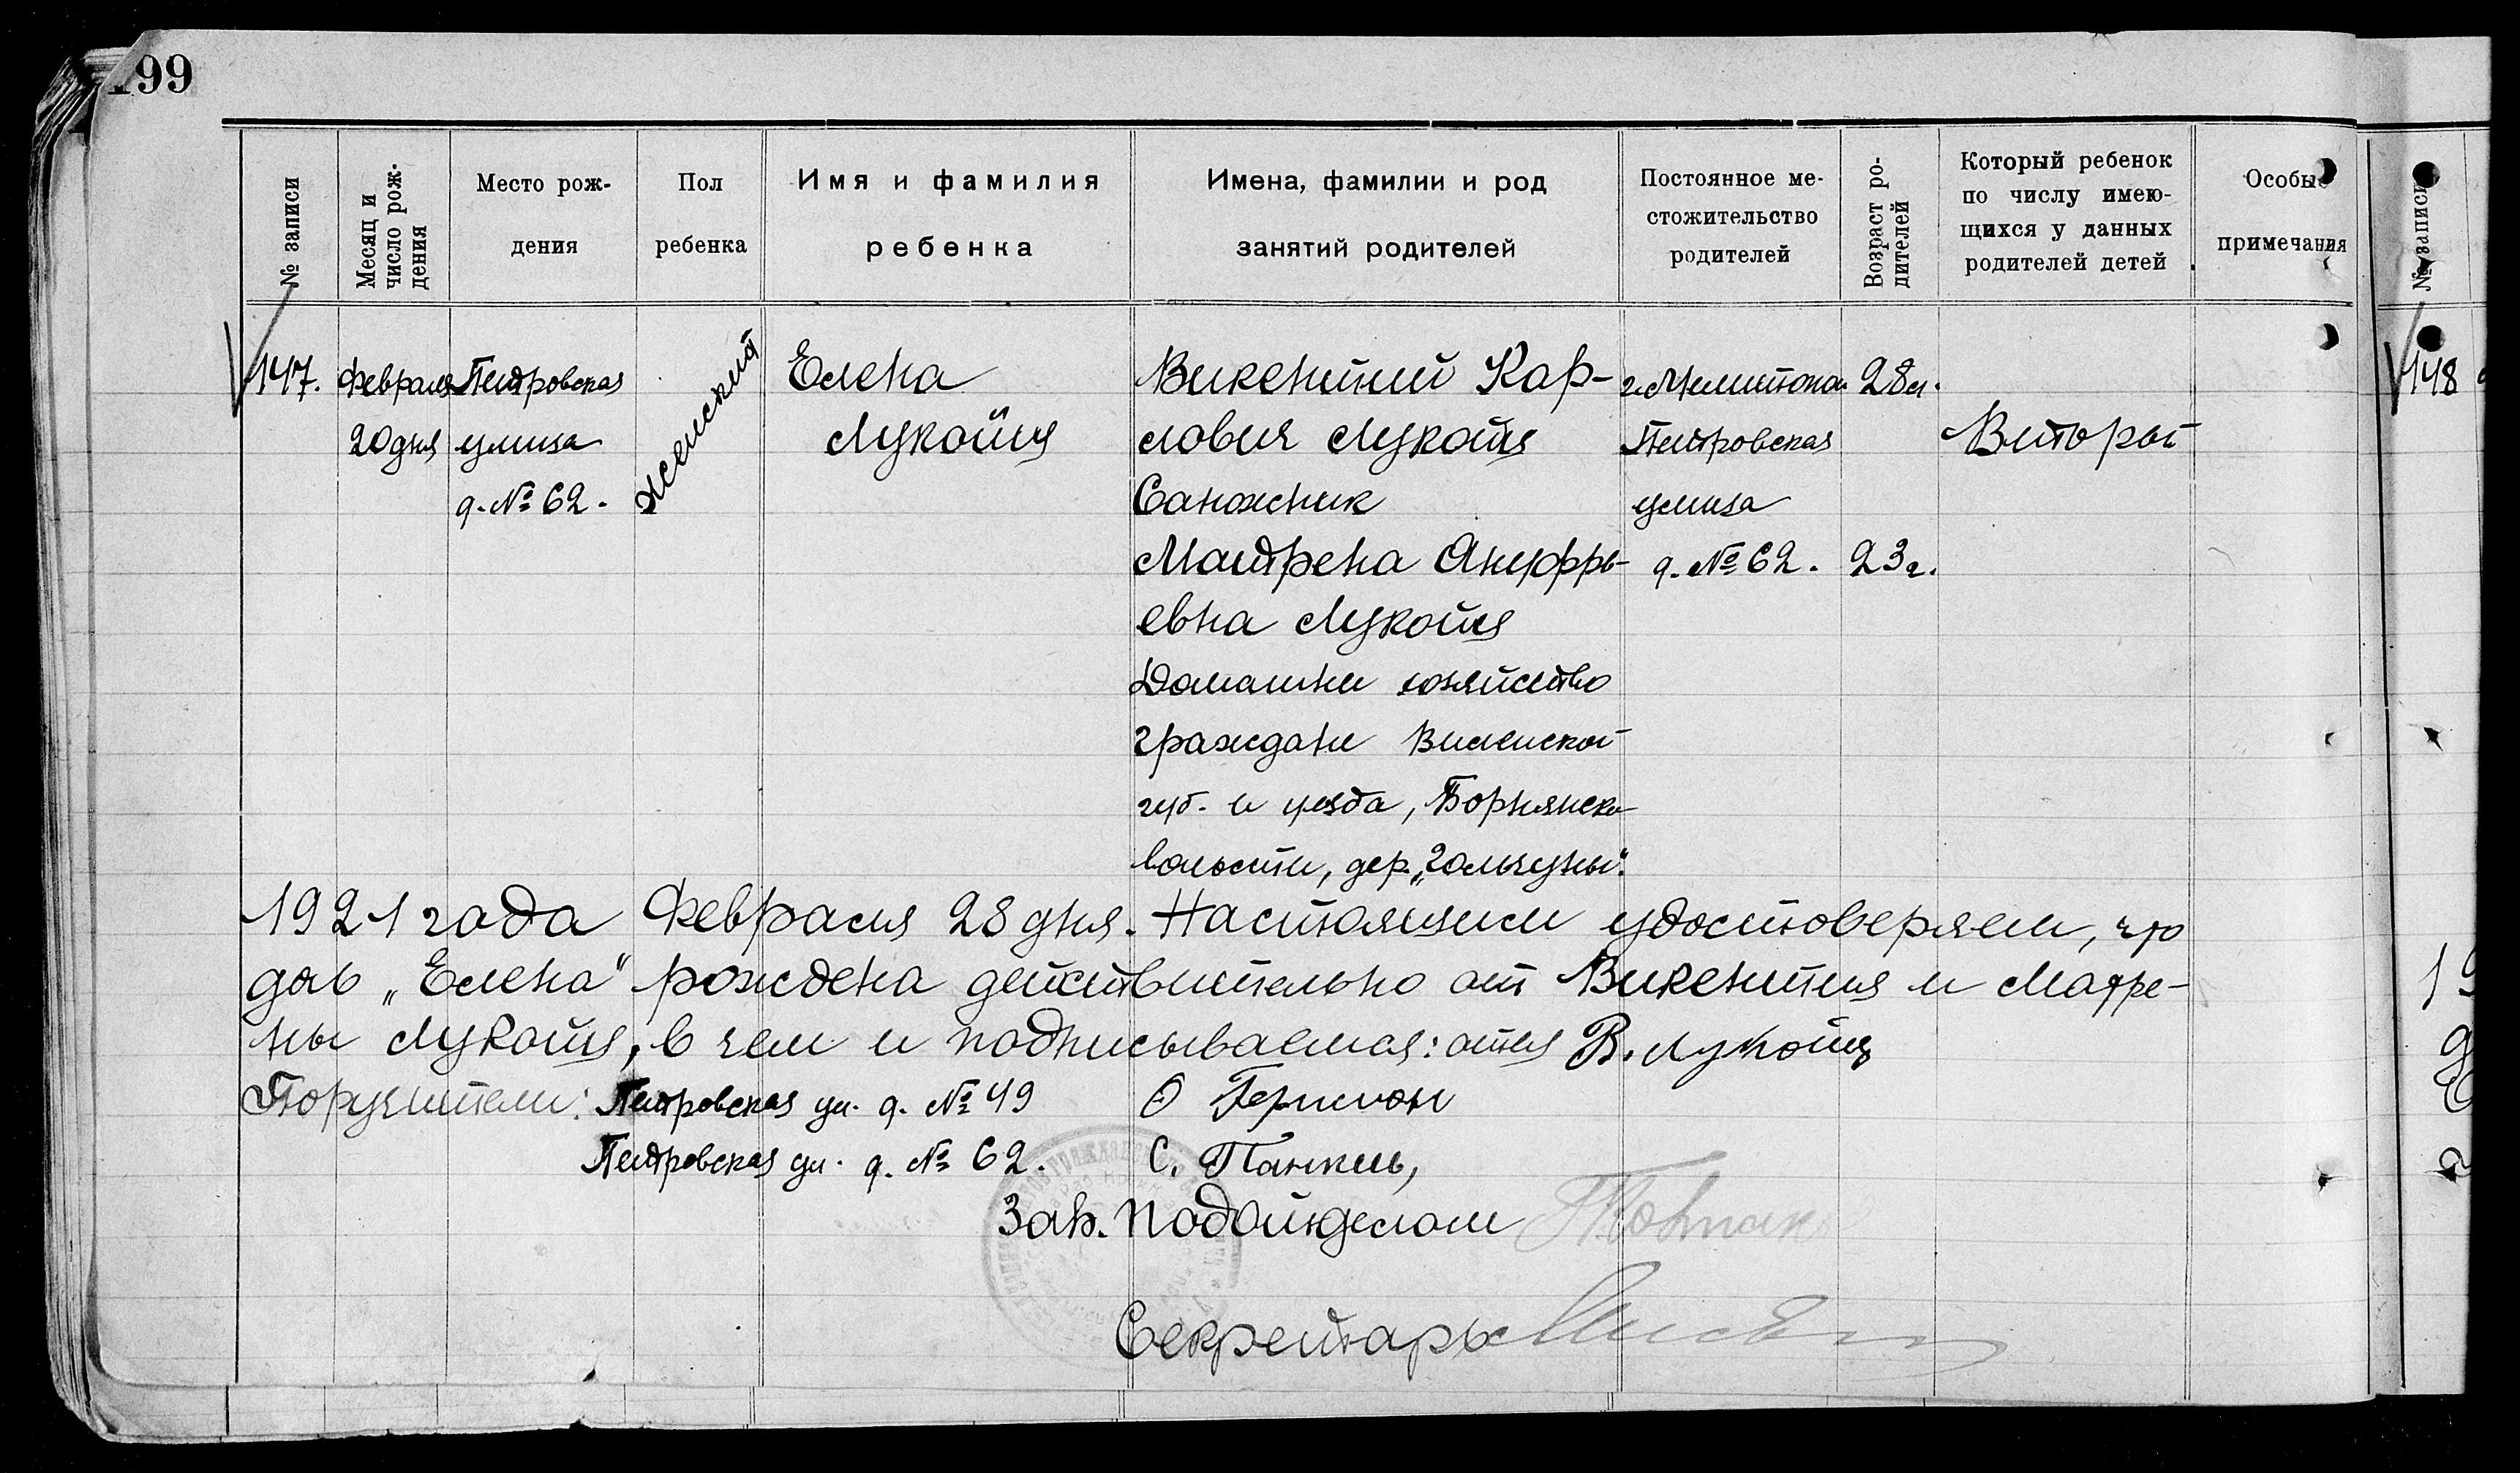 199
№ записи
Месяц и число рож-
дения
Место рож-
дения
Пол
ребенка
Имя и фамилия
ребенка
Имена, фамилии и род
занятий родителей
Постоянное ме-
стожительство
родителей
Возраст ро-
дителей
Который ребенок
по числу имею-
щихся у данных
родителей детей
Особые
примечания
№ записи
147.
Февраля
20 дня
Петровская
улица
д. № 62.
женский
Елена
Лукойця
Викентий Кар-
лович Лукойця
Сапожник
Матрена Ануфрь-
евна Лукойця
Домашни хозяйство
граждани Виленской
губ. и уезда,
волости, дер. „Гольчуны“.
г. Мелитополь
Петровская
улица
д. № 62.
28 л.
23 г.
Второй
148
1921 года Февраля 28 дня. Настоящим удостоверяем, что
дочь „Елена“ рождена действительно от Викентия и Матре-
ны Лукойця, в чем и подписываемся: отец В. Лукойць
Поручители: Петровская ул. д. № 49
Петровская ул. д. № 62. С.
Зав. Подотделом
Секретарь